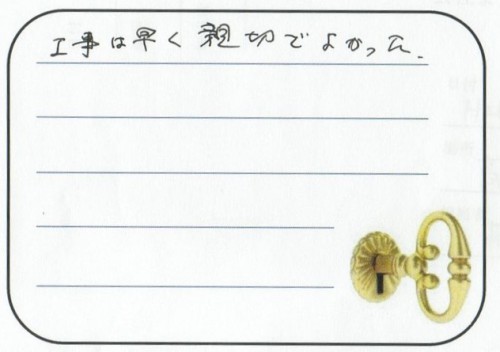 工事は早く親切でよかった.